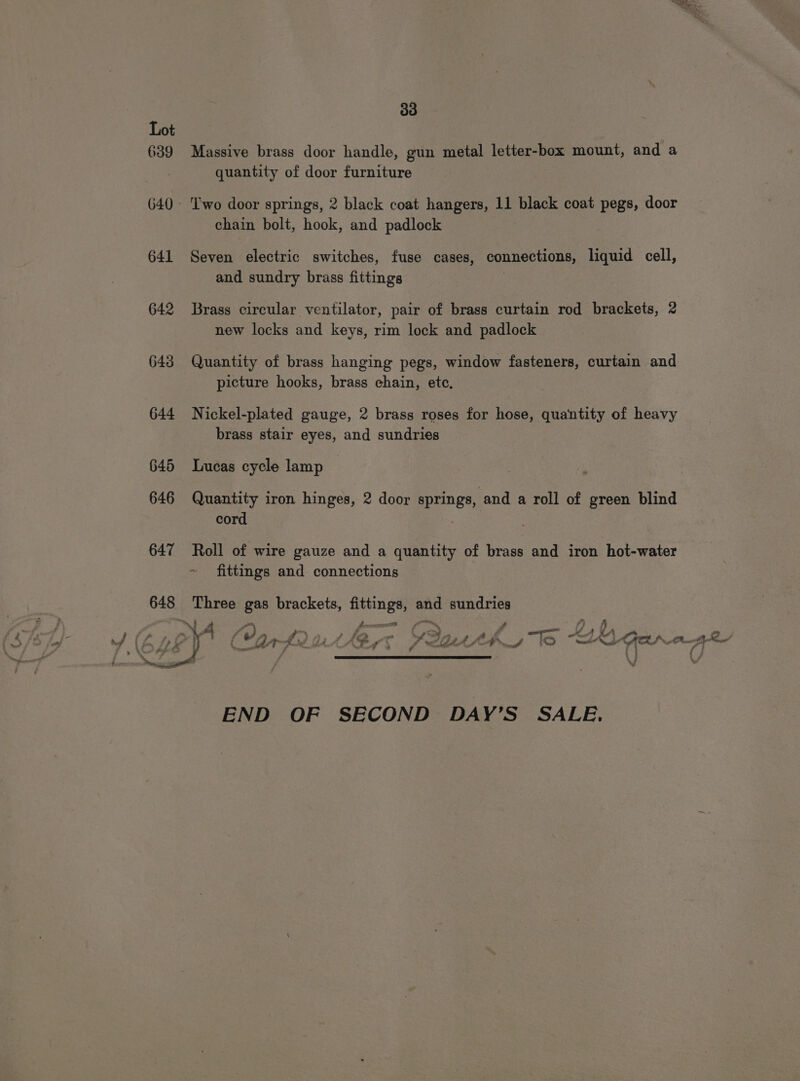 33
Lot
639 Massive brass door handle, gun metal letter-box mount, and a
quantity of door furniture
640 Two door springs, 2 black coat hangers, 11 black coat pegs, door
chain bolt, hook, and padlock
641 Seven electric switches, fuse cases, connections, liquid cell,
and sundry brass fittings
642 Brass circular ventilator, pair of brass curtain rod brackets, 2
new locks and keys, rim lock and padlock
643 Quantity of brass hanging pegs, window fasteners, curtain and
picture hooks, brass chain, etc.
644 Nickel-plated gauge, 2 brass roses for hose, quantity of heavy
brass stair eyes, and sundries
645 Lucas cycle lamp
646 Quantity iron hinges, 2 door springs, and a roll of green blind
cord
647 Roll of wire gauze and a quantity of brass and iron hot-water
fittings and connections
648 Three gas brackets, fittings, and sundries
A Carpenters Bench, To
END OF SECOND DAY'S SALE.